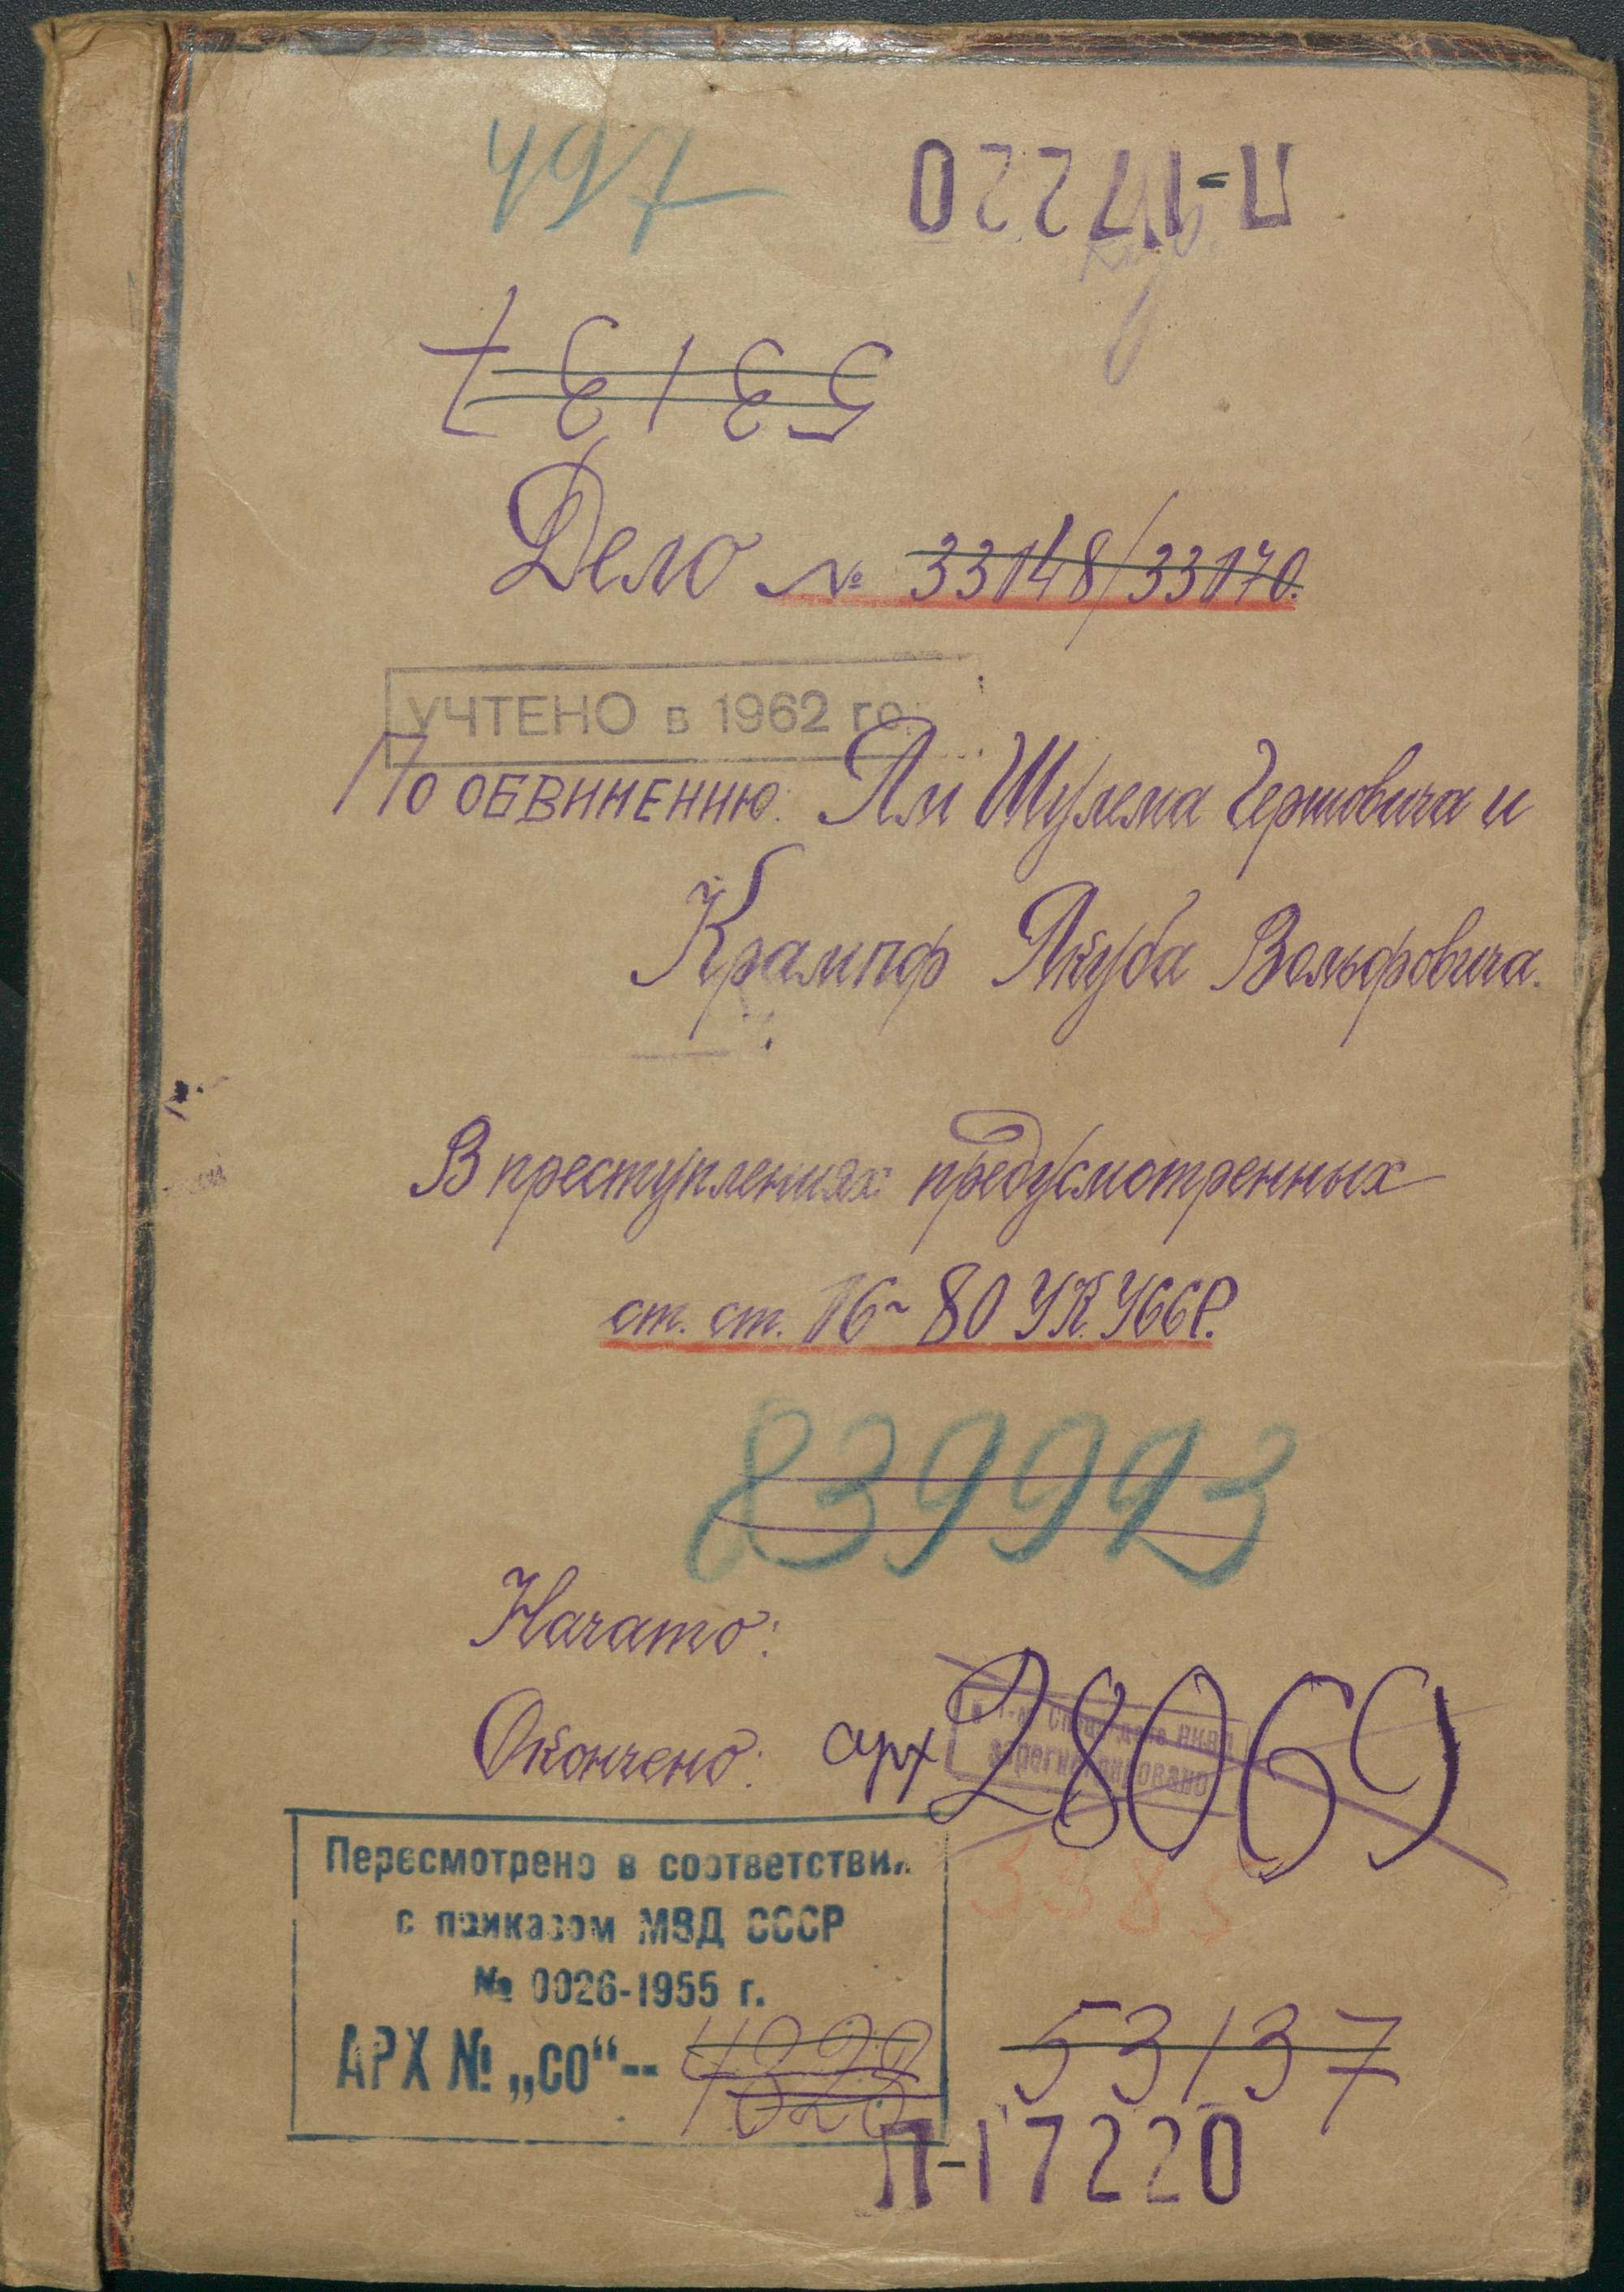 497
П-17220
53137
Дело № 33148/33170.
УЧТЕНО в 1962 го
По обвинению: Ям Шулема Гершовича и
Крампф Якуба Вольфовича.
В преступлениях предусмотренных
ст. ст. 16~80 УК УССР.
839993
Начато:
Окончено: арх 28069
зарегистрировано
Пересмотрено в соответствии
с приказом МВД СССР
№ 0026-1955 г.
АРХ № „СО“--
53137
П-17220